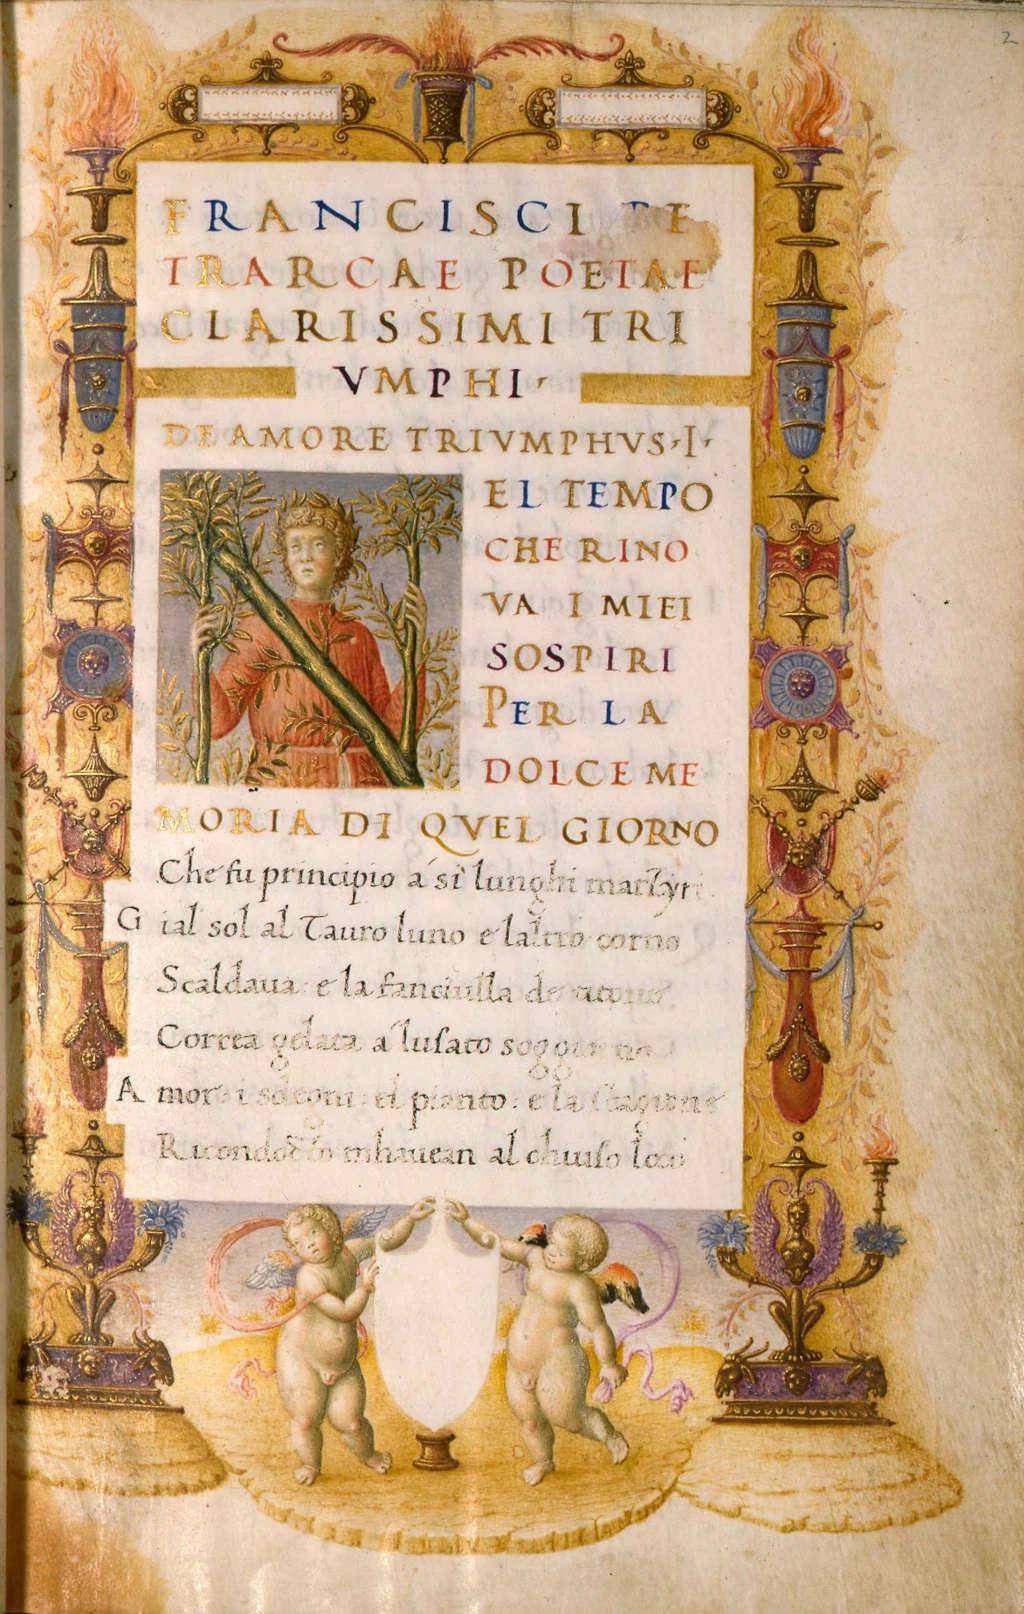 2
FRANCISCI PE
TRARCAE POETAE
CLARISSIMI TRI
VMPHI
DE AMORE TRIVMPHVS · I ·
N EL TEMPO
CHE RINO
VA I MIEI
SOSPIRI
PER LA
DOLCE ME
MORIA DI QVEL GIORNO
Che fu principio á si lunghi martyri
G ial sol al Tauro luno e laltro corno
Scaldaua: e la fanciulla de
Correa gelata á lusato soggiorno
A mor: i sdegni: el pianto: e la stagione
mhauean al chiuso loco